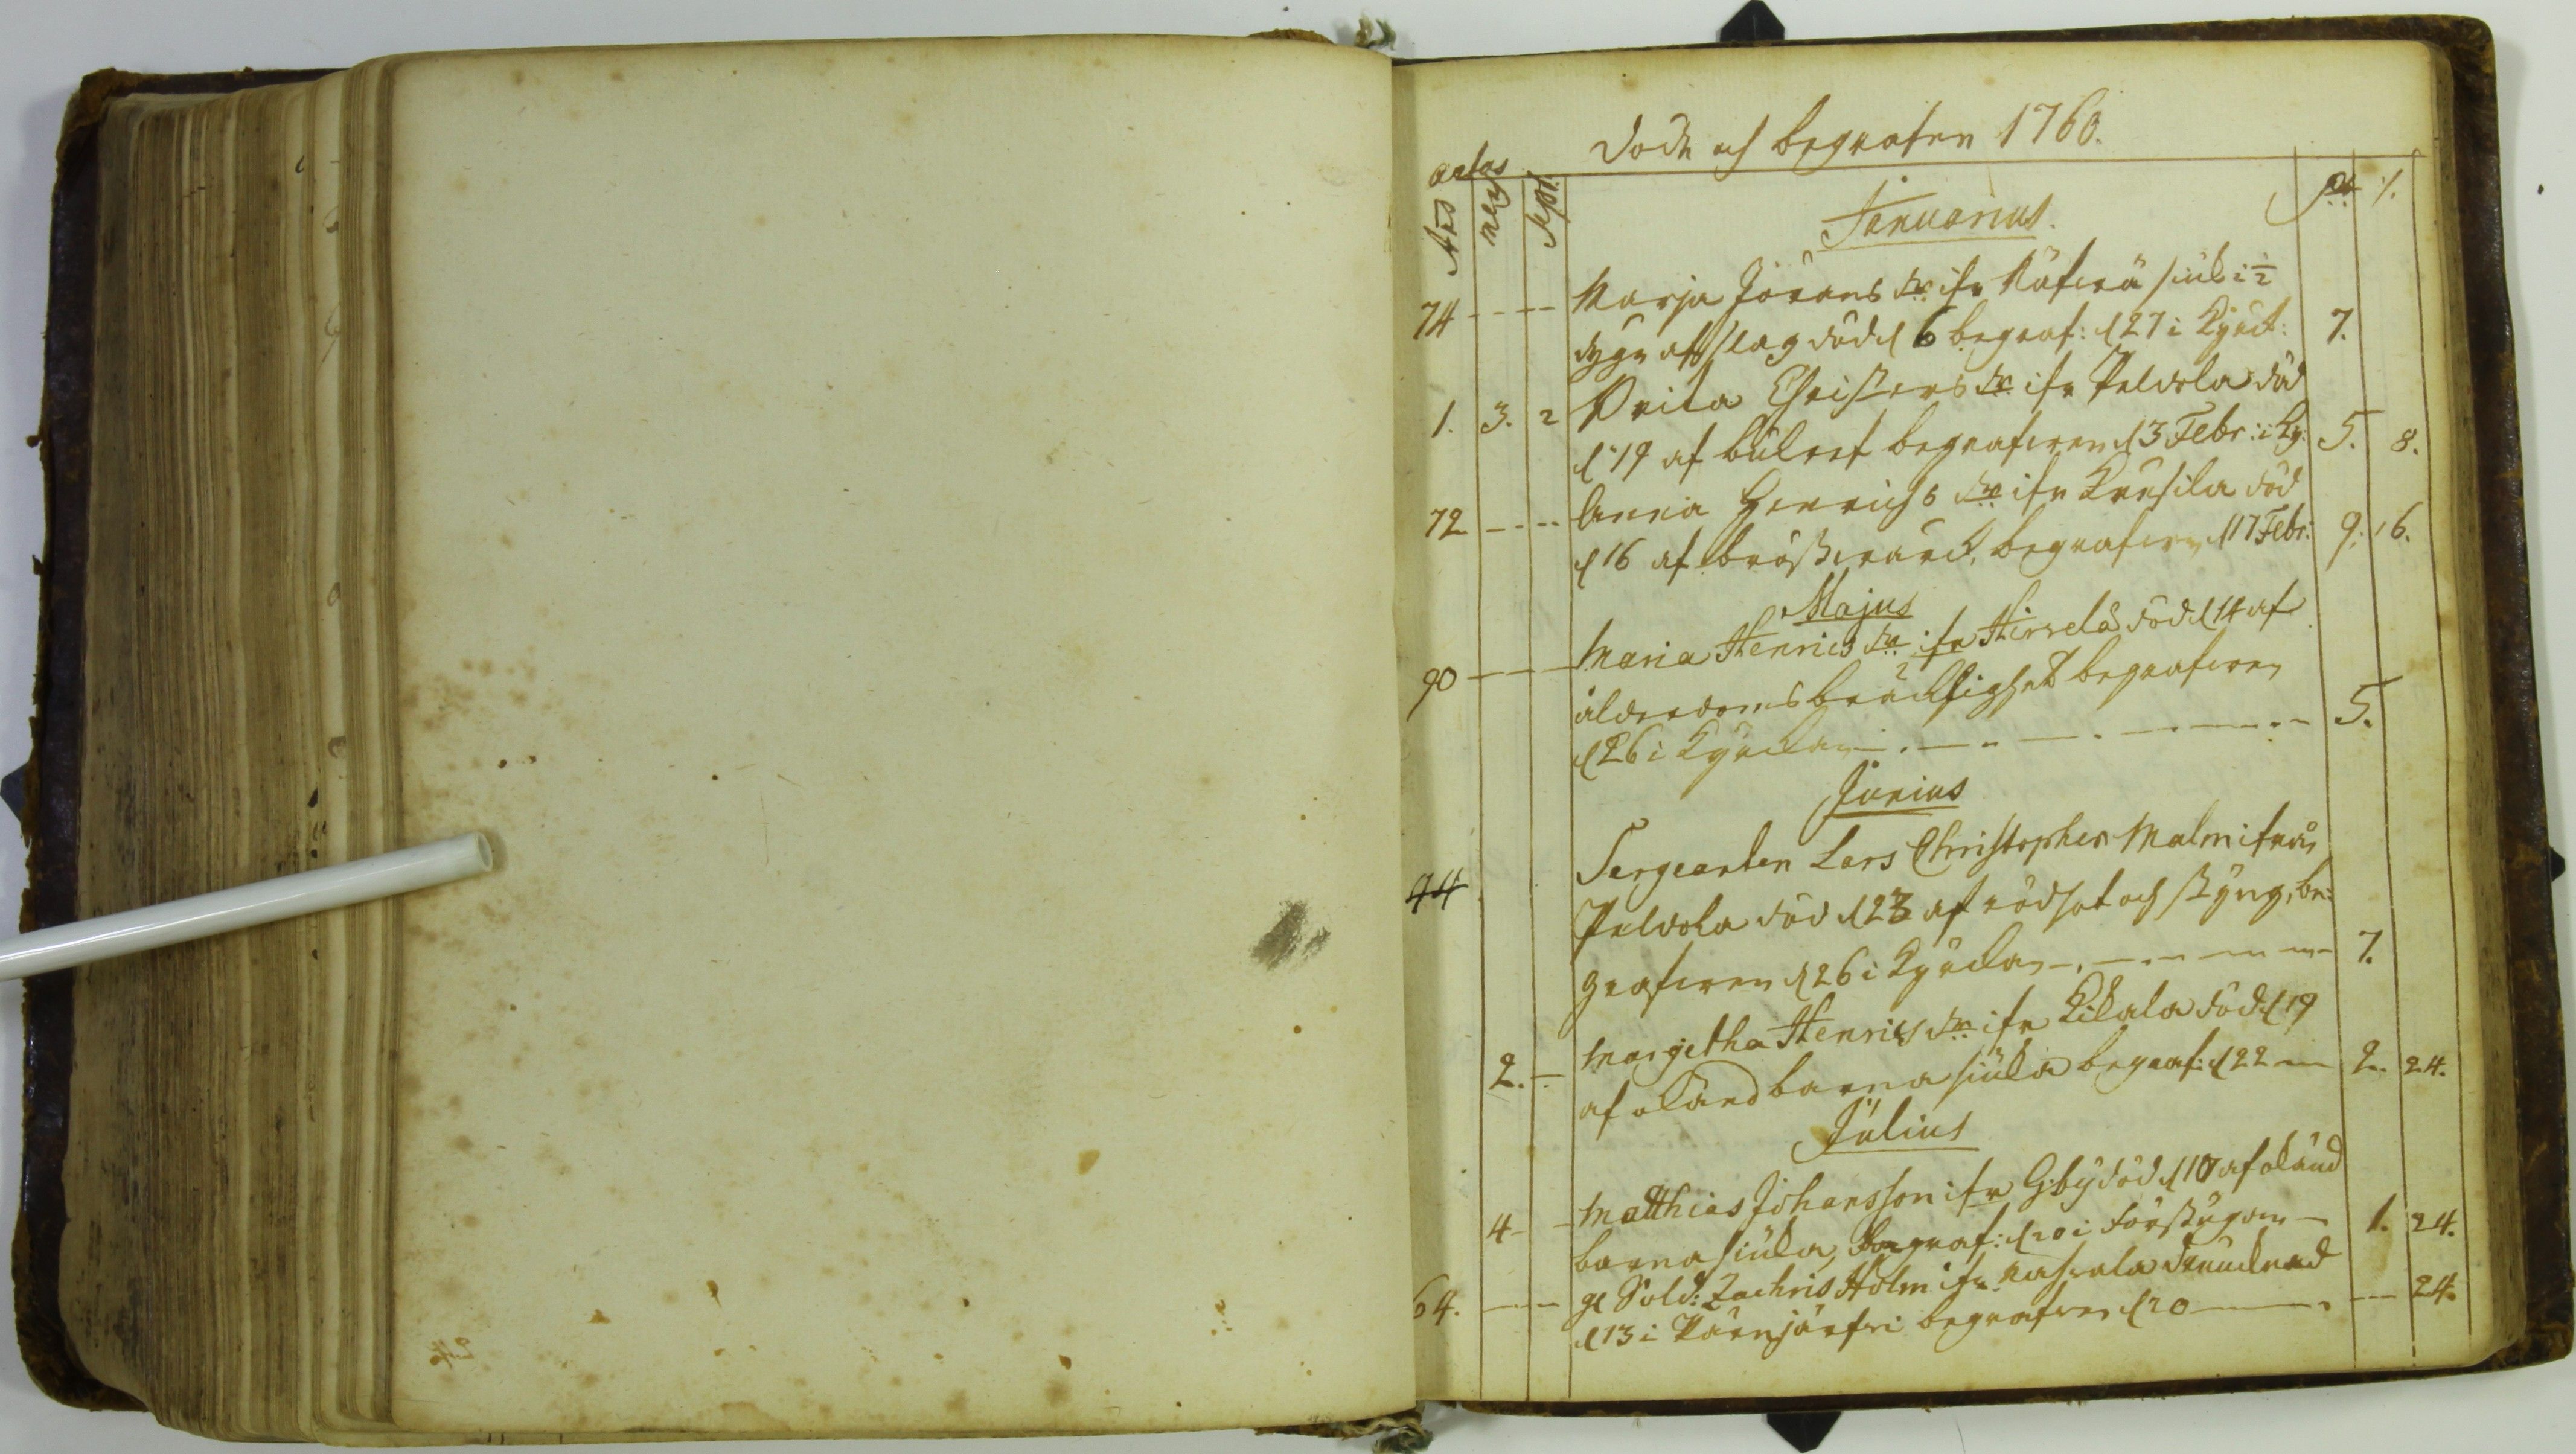 Döde och begrafne 1760.
aetas
Åhr Mån Dagar
Januarius.
74 - - - - Marja Jörans dr ifr siuk i ½
dygn af slag död d 6 begraf: d 27 i Kyrck: 7.
1. 3. 2 Brita Christers dr ifr Peldola död
d 19 af bulnet begrafven d 3 Febr: i Ky: 5. 8.
72 - - - - Anna Henrichs dr ifr död
d 16 af bröstwärck, begrafven d 17 Febr: 9. 16.
Majus
90 - - - Maria Henrics dr ifr Hirvelä död d 14 af
ålderdoms bräcklighet begrafven
d 26 i Kyrckan - - - - - 5.
Junius
44 Sergeanten Lars Christopher Malm ifrån
Peldola död d 23 af rödsot och styng, be:
grafven d 26 i Kyrckan - - - - 7.
Margetha Henrics dr ifr Kikala död d 19
2. - af okänd barna siuka begraf: d 22 - 2. 24.
Julius
4 - - Matthias Johansson ifr G:by död d 10 af okänd
barna siuka, begraf: d 20 i förstugan - 1. 24.
64. - - - gl Sold: Zachris Holm ifr drunknad
d 13 i begrafven d 20 - - - 24.